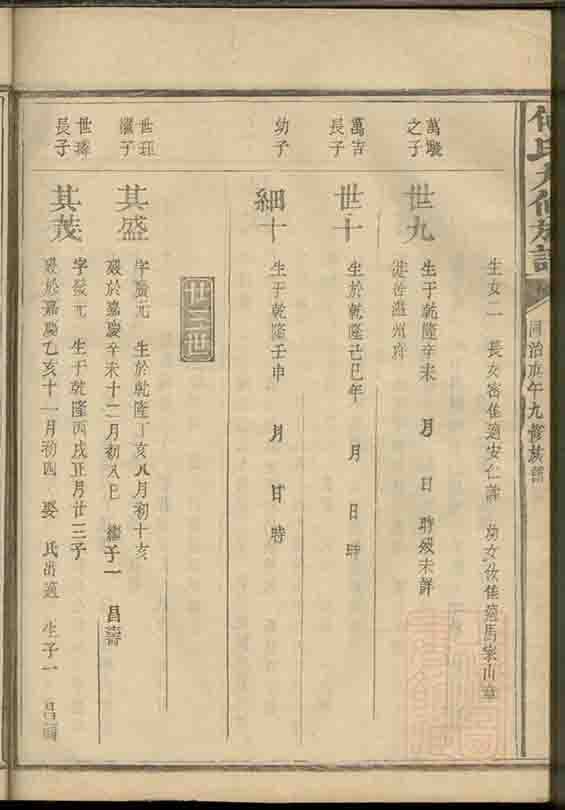 何氏九修族譜
同治庚午九修族譜
生女二 長女容隹適安仁譚 幼女汝隹適馬家山韋
萬駿之子
世九
生于乾隆辛未 月 日 時歿未詳
遊善溫州府
萬吉長子
世十
生於乾隆己巳年 月 日 時
幼子
細十
生于乾隆壬申 月 日 時
廿三世
世珥繼子
其盛
字發元 生於乾隆丁亥八月初十亥
歿於嘉慶辛未十二月初八巳 繼子一 昌壽
世璋長子
其茂
字發元 生于乾隆丙戌正月廿三子
歿於嘉慶乙亥十一月初四 娶 氏出適 生子一 昌